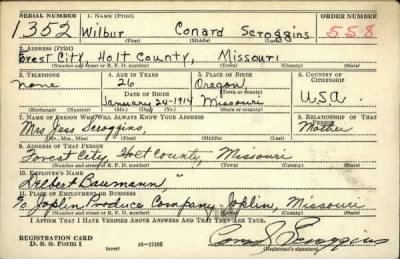 SERIAL NUMBER 1. NAME (Print) ORDER NUMBER
1352 Wilbur Conard Scroggins 558
(First) (Middle) (Last)
2. ADDRESS (Print)
Forest City, Holt County, Missouri
(Number and street or R. F. D. number) (Town) (County) (State)
3. TELEPHONE 4. AGE IN YEARS 5. PLACE OF BIRTH 6. COUNTRY OF CITIZENSHIP
None 26 Oregon
DATE OF BIRTH (Town or county)
January-24-1914 Missouri U.S.A.
(Exchange) (Number) (Mo.) (Day) (Yr.) (State or country)
7. NAME OF PERSON WHO WILL ALWAYS KNOW YOUR ADDRESS 8. RELATIONSHIP OF THAT PERSON
Mrs Jess Scroggins Mother
(Mr., Mrs., Miss) (First) (Middle) (Last)
9. ADDRESS OF THAT PERSON
Forest City, Holt County, Missouri
(Number and street or R. F. D. number) (Town) (County) (State)
10. EMPLOYER'S NAME
Delbert Baumann,
11. PLACE OF EMPLOYMENT OR BUSINESS
% Joplin Produce Company - Joplin, Missouri
(Number and street or R. F. D. number) (Town) (County) (State)
I AFFIRM THAT I HAVE VERIFIED ABOVE ANSWERS AND THAT THEY ARE TRUE.
REGISTRATION CARD
D. S. S. Form 1 (over) 16-17105 Scroggins
(Registrant's signature)